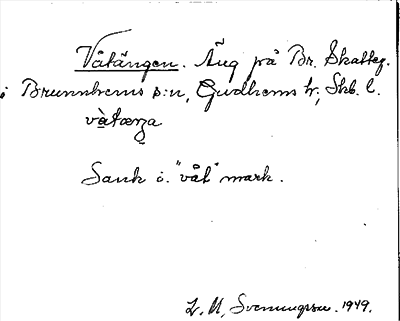 Våtängen. Äng på Br. Skatteg.
i Brunnhems s:n, Gudhems hr; Skb. l.
vàtæŋa
Sank o. "våt" mark.
L. M. Svenungsson. 1949.